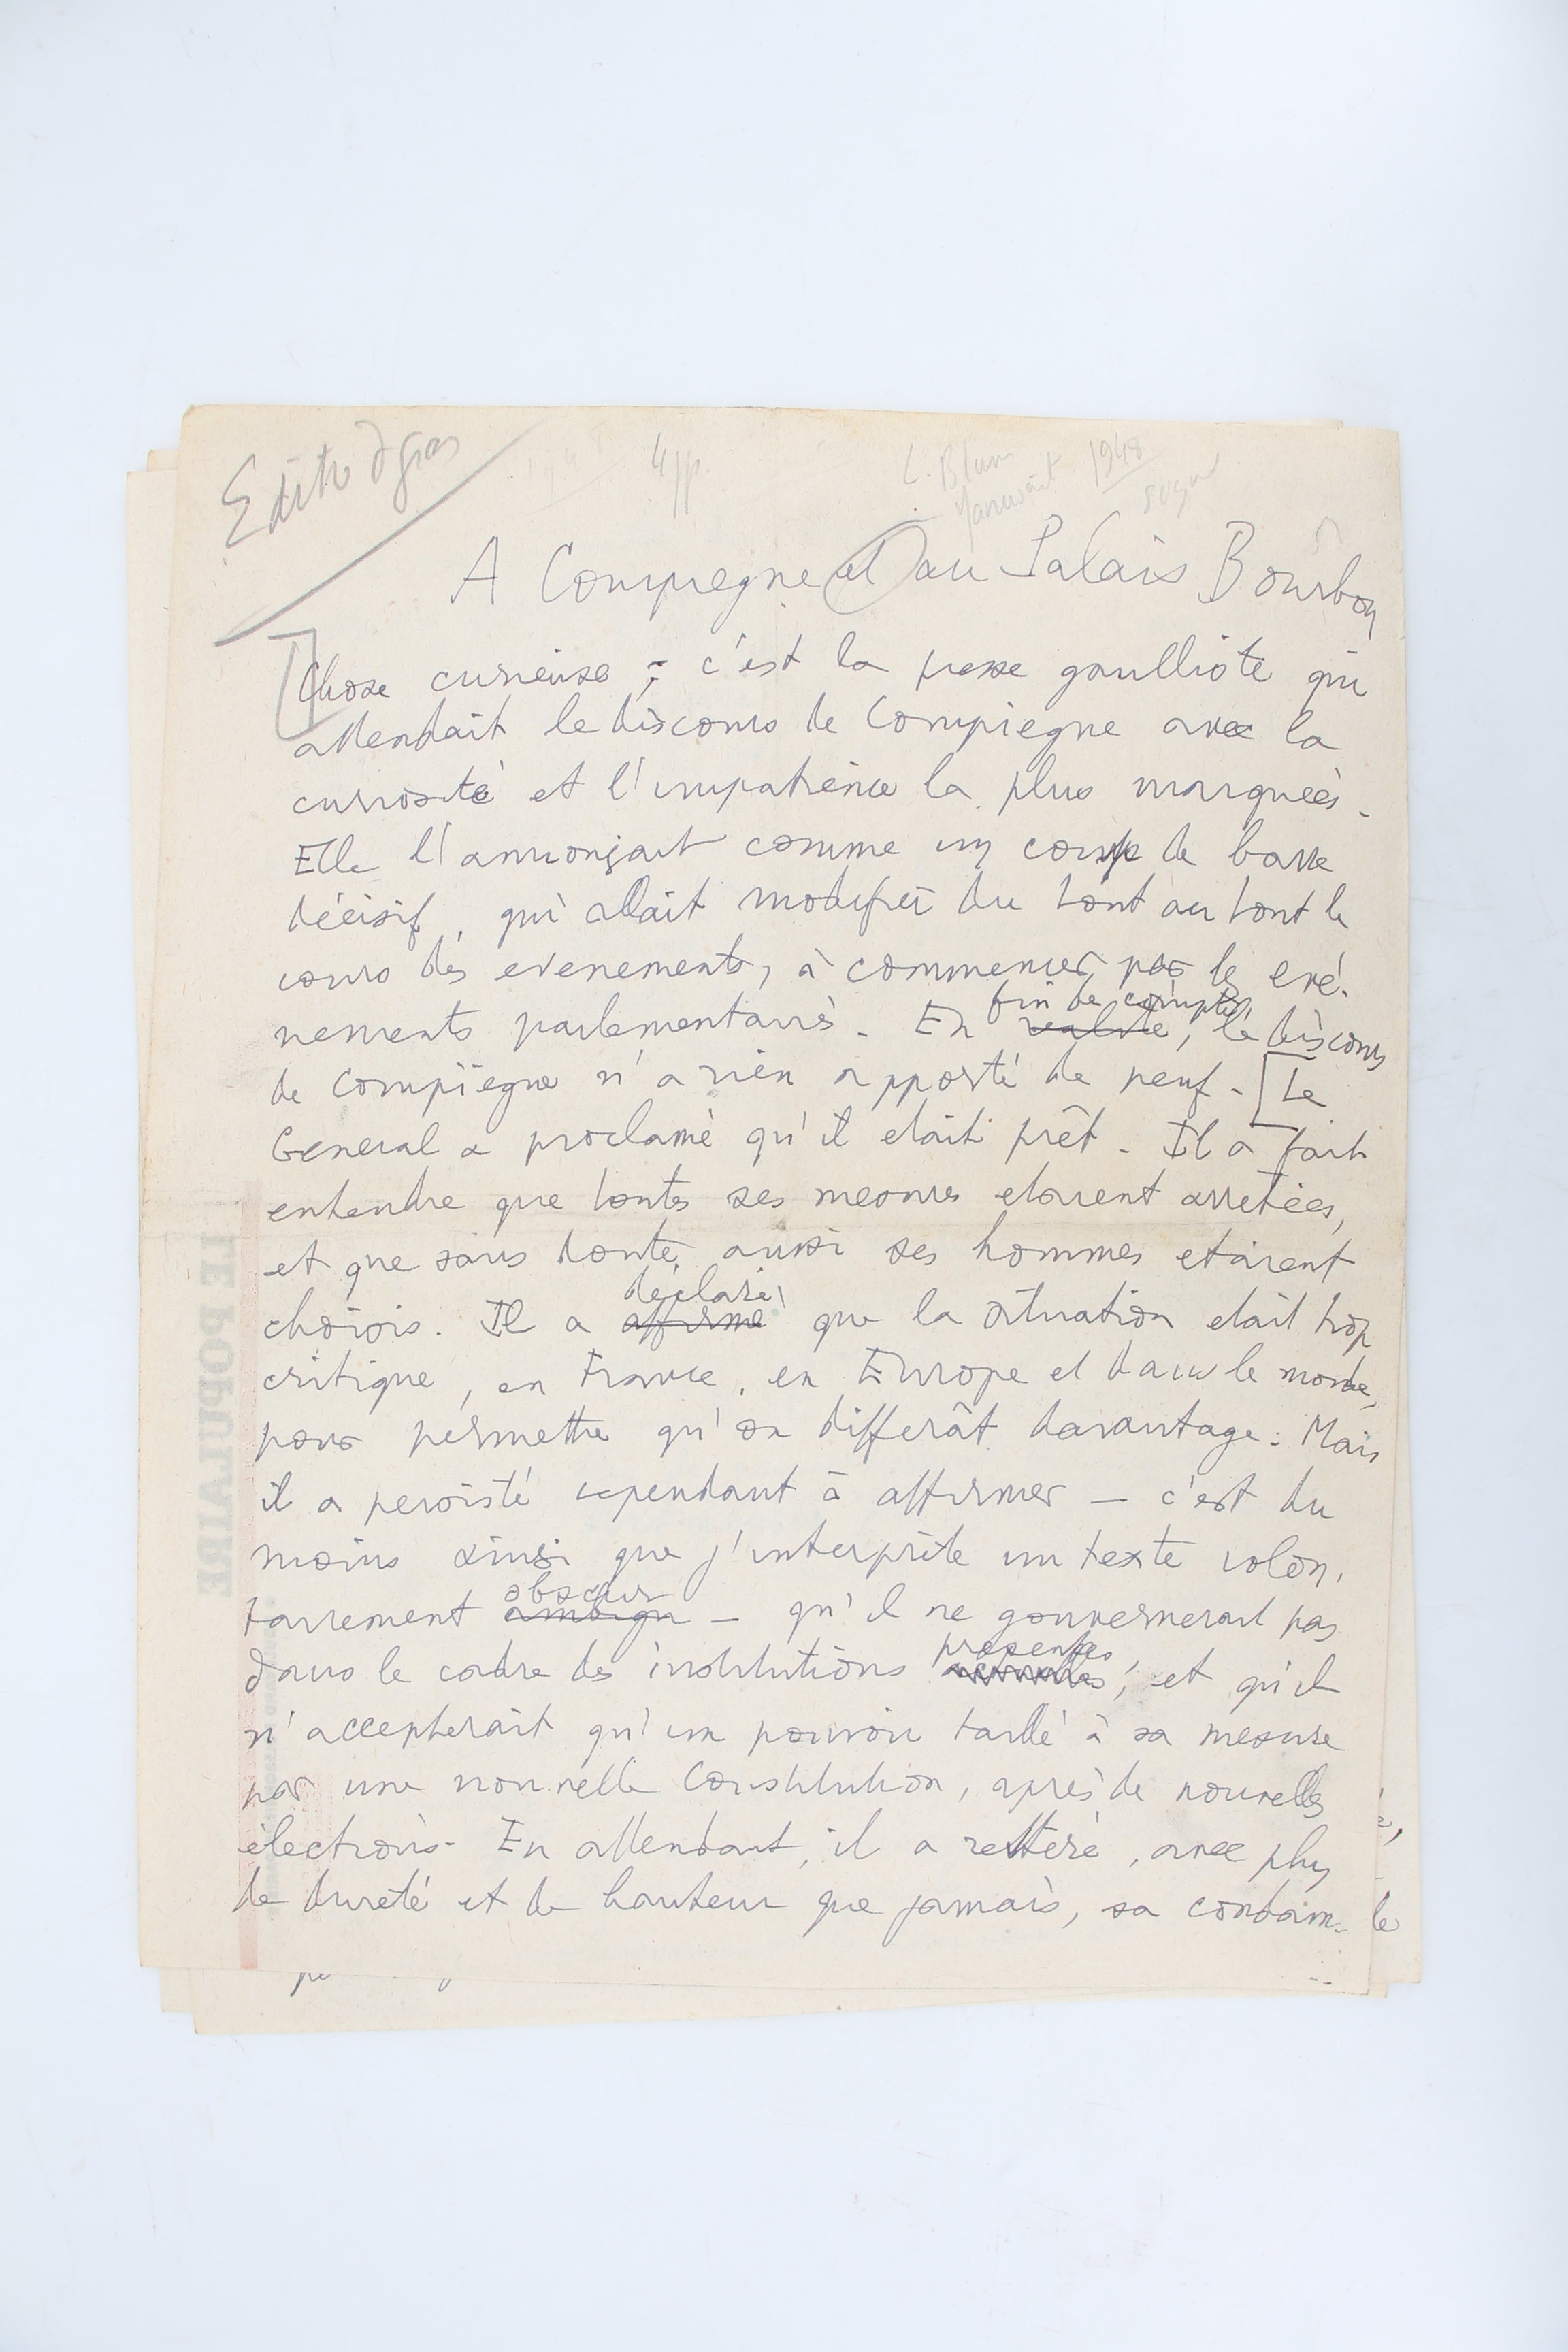 Edito 9 gras
4 pp.
L. Blum 1948
manuscrit signé
A Compiegne et au Palais Bourbon
Chose curieuse ; c'est la presse gaulliste qui
attendait le discours de Compiegne avec la
curiosité et l'impatience la plus marquées.
Elle l'annonçait comme un coup de barre
décisif, qui allait modifier du tout au tout le
cours des evenements, à commencer par les evé-
nements parlementaires. En realité fin de compte, le discours
de Compiègne n'a rien apporté de neuf. [Le
General a proclamé qu'il etait prêt. Il a fait
entendre que toutes ses mesures etaient arretées,
et que sans doute aussi ses hommes etaient
choisis. Il a affirmé déclaré que la situation etait trop
critique, en France, en Europe et dans le monde,
pour permettre qu'on differât davantage. Mais
il a persisté cependant à affirmer — c'est du
moins ainsi que j'interprète un texte volon-
tairement ambigu obscur — qu'il ne gouvernerait pas
dans le cadre des institutions actuelles présentes, et qu'il
n'accepterait qu'un pouvoir taillé à sa mesure
par une nouvelle Constitution, après de nouvelles
élections. En attendant, il a réitéré, avec plus
de dureté et de hauteur que jamais, sa condam-
le
LE POPULAIRE